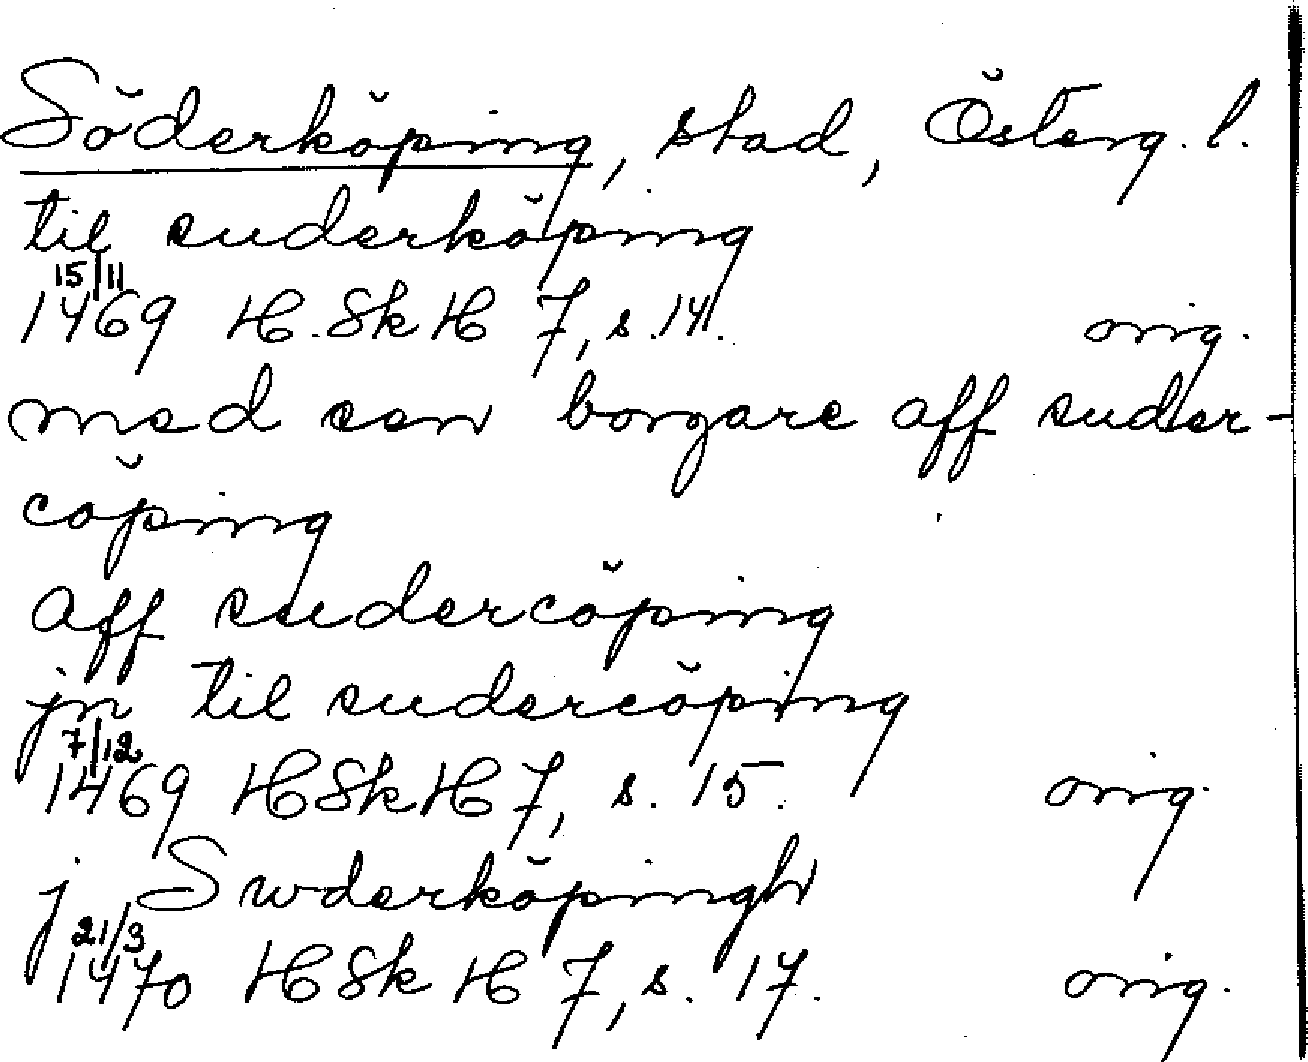 Söderköping, stad, Österg. l.
til suderköping
15/11
1469 H.SkH 7, s.14. orig.
med een borgare aff suder-
cöping
aff sudercöping
jn til sudercöping
7/12
1469 HSkH 7, s. 15. orig.
j Swderköpingh
21/3
1470 HSkH 7, s. 17. orig.